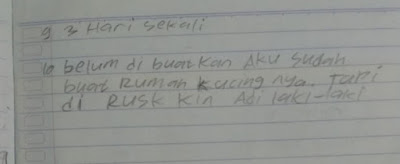 9 3 Hari sekali
10 belum di buatkan Aku sudah
buat Rumah kucing nya. Tapi
di RUSK Kin Adi laki-laki